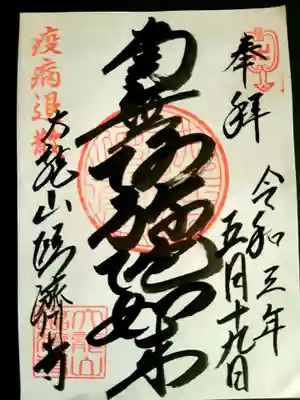 奉拝
令和三年
五月十九日
南無阿弥陀如来
大龍山臨済寺
疫病退散